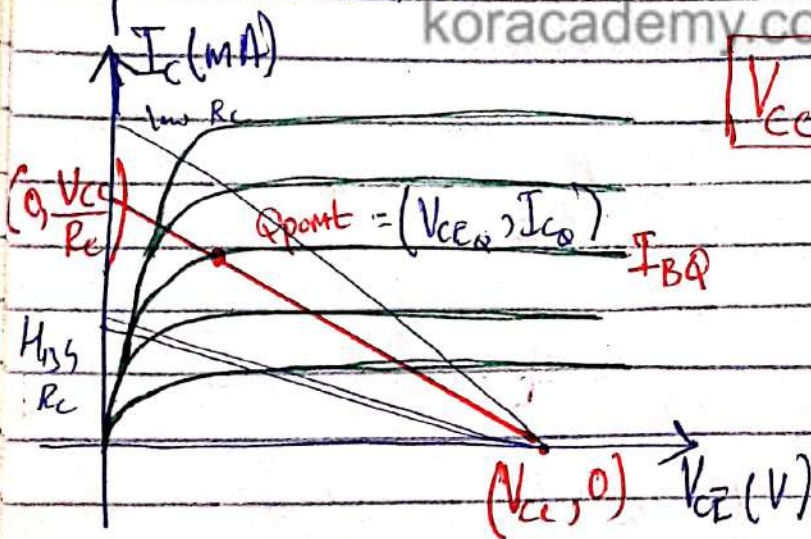 koracademy.co
I_C (mA)
V_CC
low R_C
(0, V_CC/R_C)
Qpoint = (V_CEQ, I_CQ)
I_BQ
High R_C
(V_CC, 0)
V_CE (V)